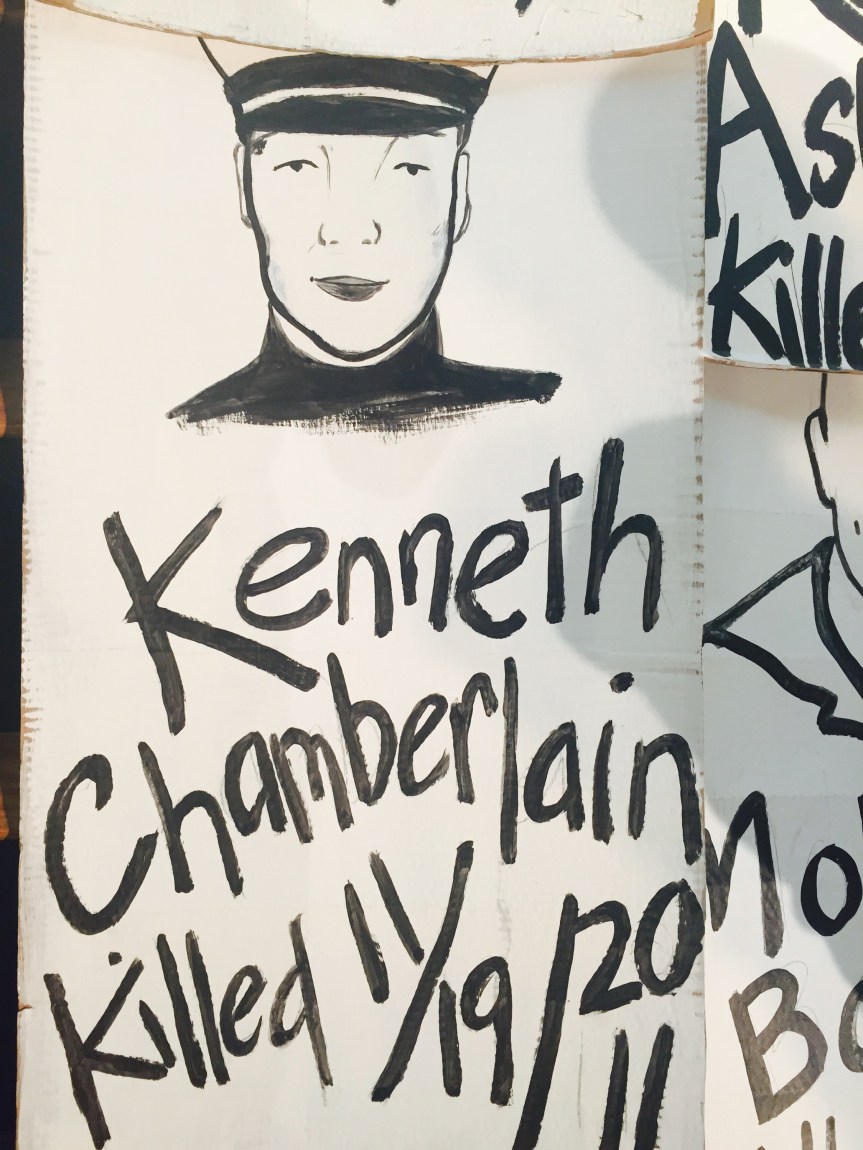 Kenneth
Chamberlain
Killed 11/19/2011
As
Kille